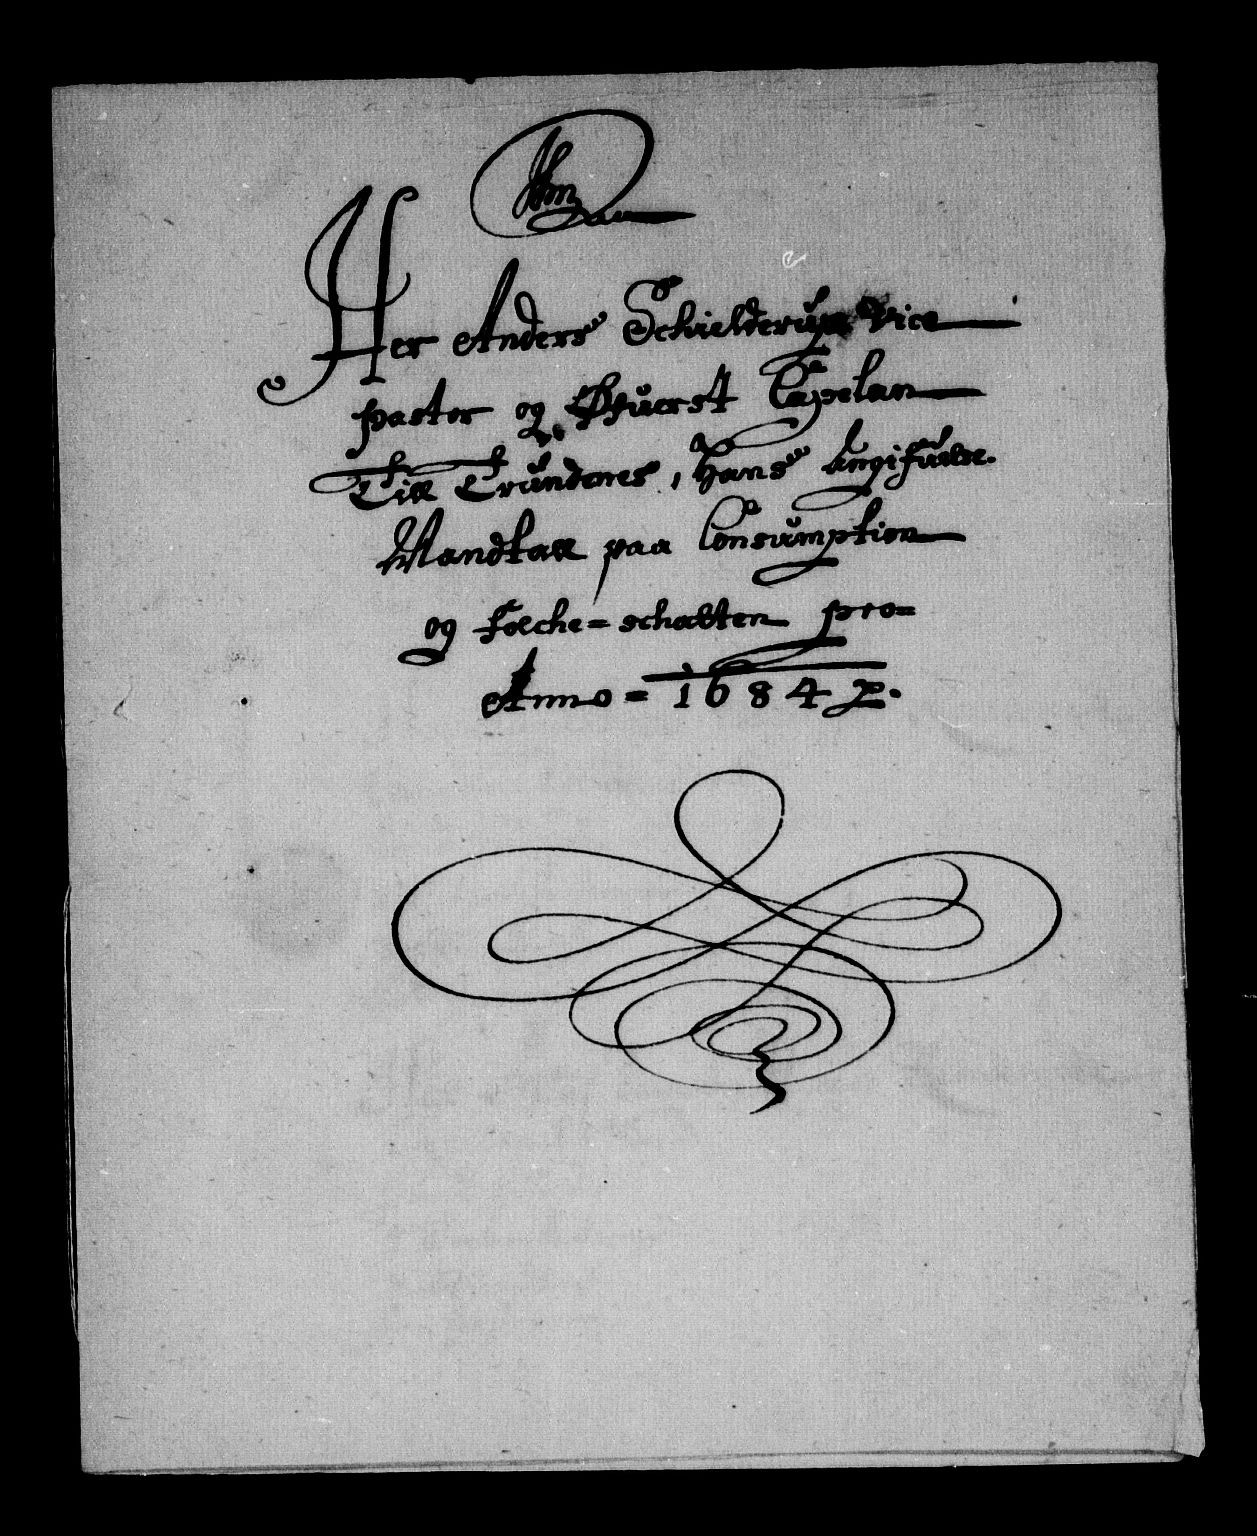 Her Anders Schielderup Vice
pastor og Øfuerst Capelan
Till Trundenes, Hans Angifuelse.
Mandtall paa Consumption
og folche = schatten pro =
Anno = 1684